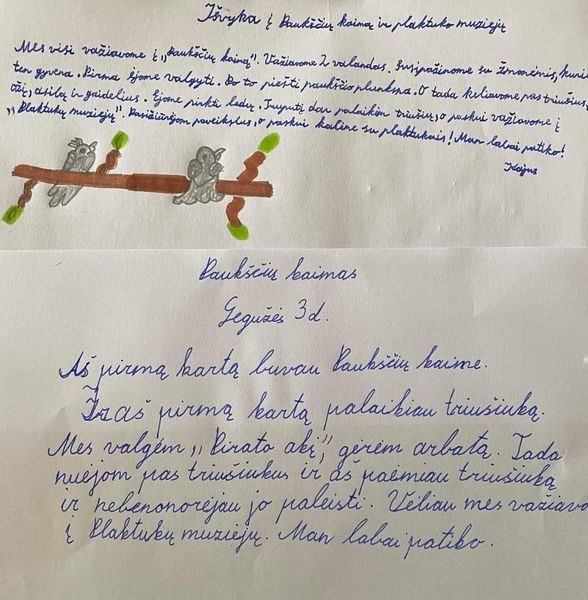 Išvyka į Paukščių kaimą ir plaktuko muziejų
Mes visi važiavome į ,,Paukščių kaimą". Važiavome 2 valandas. Susipažinome su žmonėmis, kurie
ten gyvena. Pirma ėjome valgyti. Po to piešti paukščio plunksna. O tada keliavome pas triušius,
ožį, asilą ir gaidelius. Ėjome pirkti ledų. Truputį dar palaikėm triušius, o paskui važiavome į
,,Plaktukų muziejų". Pasižiūrėjom paveikslus, o paskui kalėme su plaktukais! Man labai patiko!
Kajus
Paukščių kaimas
Gegužės 3 d.
Aš pirmą kartą buvau Paukščių kaime.
Ir aš pirmą kartą palaikiau triušiuką.
Mes valgėm ,,Pirato akį", gėrėm arbatą. Tada
nuėjom pas triušiukus ir aš paėmiau triušiuką
ir nebenorėjau jo paleisti. Vėliau mes važiavo
į Plaktukų muziejų. Man labai patiko.